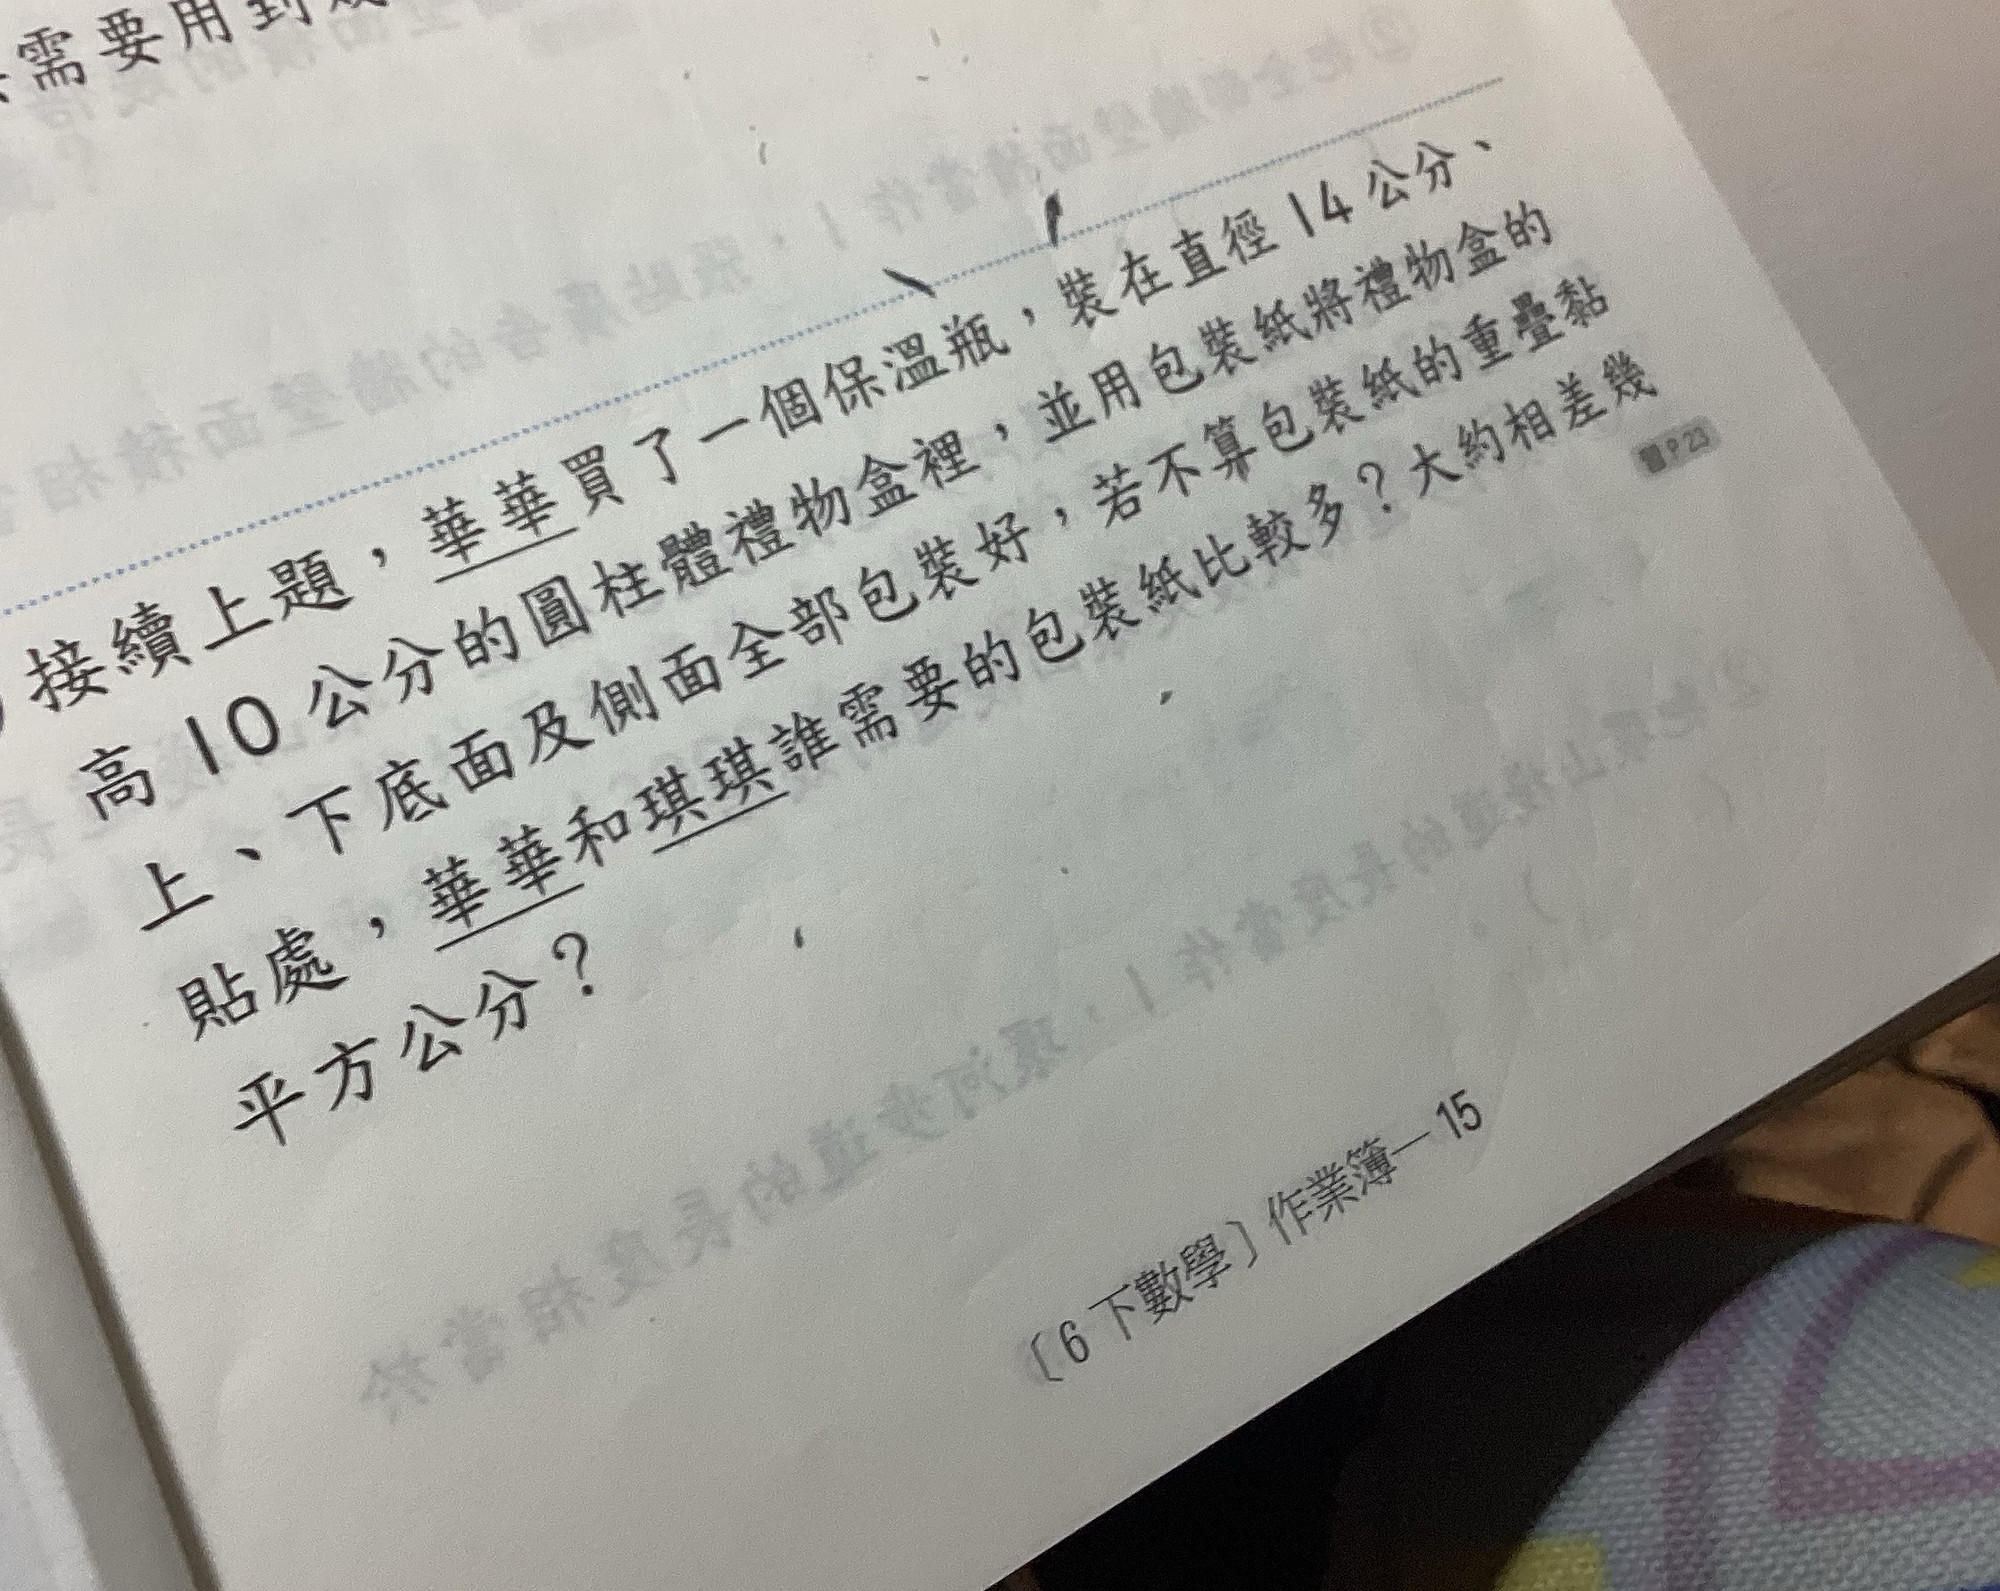 需要用到
接續上題，華華買了一個保溫瓶，裝在直徑14公分、
高10公分的圓柱體禮物盒裡，並用包裝紙將禮物盒的
上、下底面及側面全部包裝好，若不算包裝紙的重疊黏
貼處，華華和琪琪誰需要的包裝紙比較多？大約相差幾
平方公分？
習P23
〔6下數學〕作業簿—15